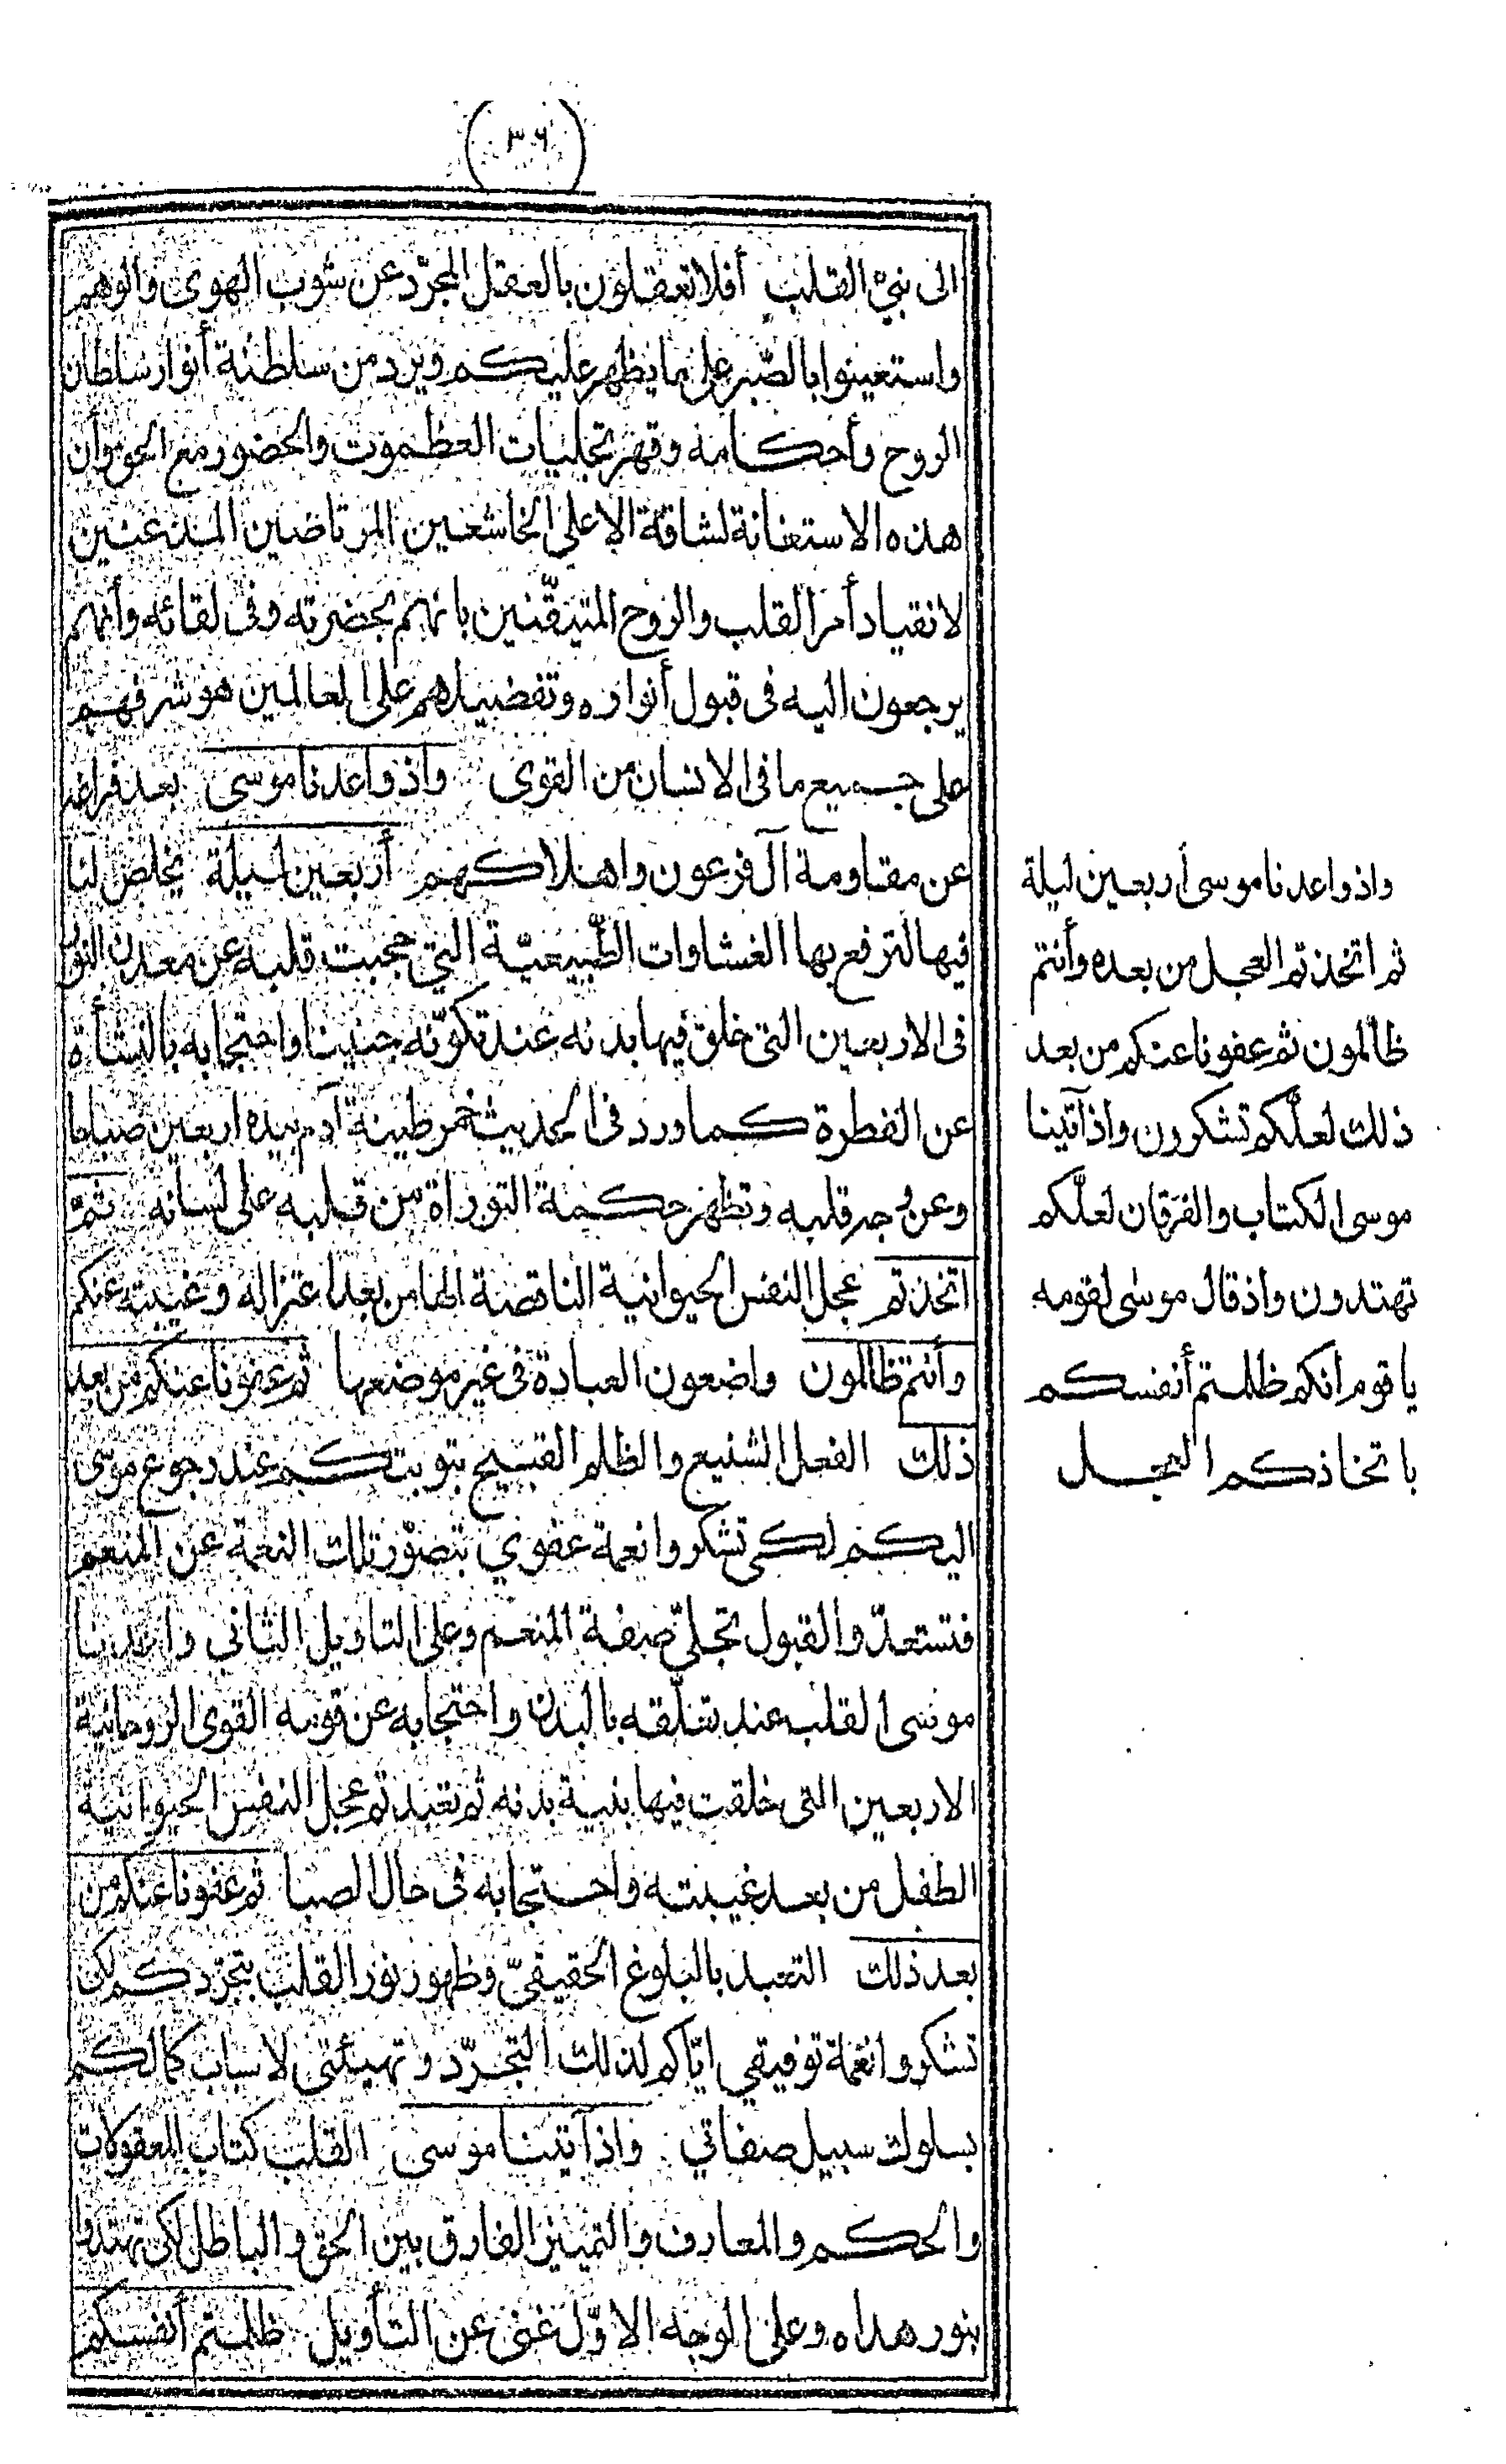 (٣٦)
الى نبىّ القلب أفلا تعقلون بالعقل المجرّد عن شوب الهوى والوهم
واستعينوا بالصّبر على ما يظهر عليكم ويرد من سلطنة أنوار سلطان
الروح وأحكامه وقهر تجليات العظموت والحضور مع الحق وأن
هذه الاستعانة لشاقة الا على الخاشعين المرتاضين المذعنين
لانقياد أمر القلب والروح المتيقّنين بانهم بحضرته وفى لقائه وأنهم
يرجعون اليه فى قبول أنواره وتفضيلهم على العالمين هو شرفهم
على جميع ما فى الانسان من القوى واذ واعدنا موسى بعد فراغه
عن مقاومة آل فرعون واهلاكهم أربعين ليلة يخلص لنا
فيها لترفع بها الغشاوات الطّبيعيّة التى حجبت قلبه عن معدن النور
فى الاربعين التى خلق فيها بدنه عند تكوّنه جنينا واحتجابه بالنشأة
عن الفطرة كما ورد فى الحديث خمر طينة آدم بيده اربعين صباحا
وعن وجه قلبه وتظهر حكمة التوراة من قلبه على لسانه ثمّ
اتخذتم عجل النفس الحيوانية الناقصة الها من بعد اعتزاله وغيبته عنكم
وأنتم ظالمون واضعون العبادة فى غير موضعها ثم عفونا عنكم من بعد
ذلك الفعل الشنيع والظلم القبيح بتوبتكم عند رجوع موسى
اليكم لكى تشكروا نعمة عفوي بتصوّر تلك النعمة عن المنعم
فتستعدّوا لقبول تجلىّ صفة المنعم وعلى التاويل الثانى واعدنا
موسى القلب عند تعلّقه بالبدن واحتجابه عن قومه القوى الروحانية
الاربعين التى خلقت فيها بنية بدنه ثم تعبدتم عجل النفس الحيوانية
الطفل من بعد غيبته واحتجابه فى حال الصبا ثم عفونا عنكم من
بعد ذلك التعبد بالبلوغ الحقيقىّ وظهور نور القلب بتجرّدكم لكى
تشكروا نعمة توفيقي ايّاكم لذلك التجرّد وتهيئتى لاسباب كمالكم
بسلوك سبيل صفاتي واذ آتينا موسى القلب كتاب المعقولات
والحكم والمعارف والتمييز الفارق بين الحق والباطل لكى تهتدوا
بنور هداه وعلى الوجه الاوّل غنى عن التأويل ظلمتم أنفسكم
واذ واعدنا موسى أربعين ليلة
ثم اتخذتم العجل من بعده وأنتم
ظالمون ثم عفونا عنكم من بعد
ذلك لعلّكم تشكرون واذ آتينا
موسى الكتاب والفرقان لعلّكم
تهتدون واذ قال موسى لقومه
يا قوم انكم ظلمتم أنفسكم
باتخاذكم العجل